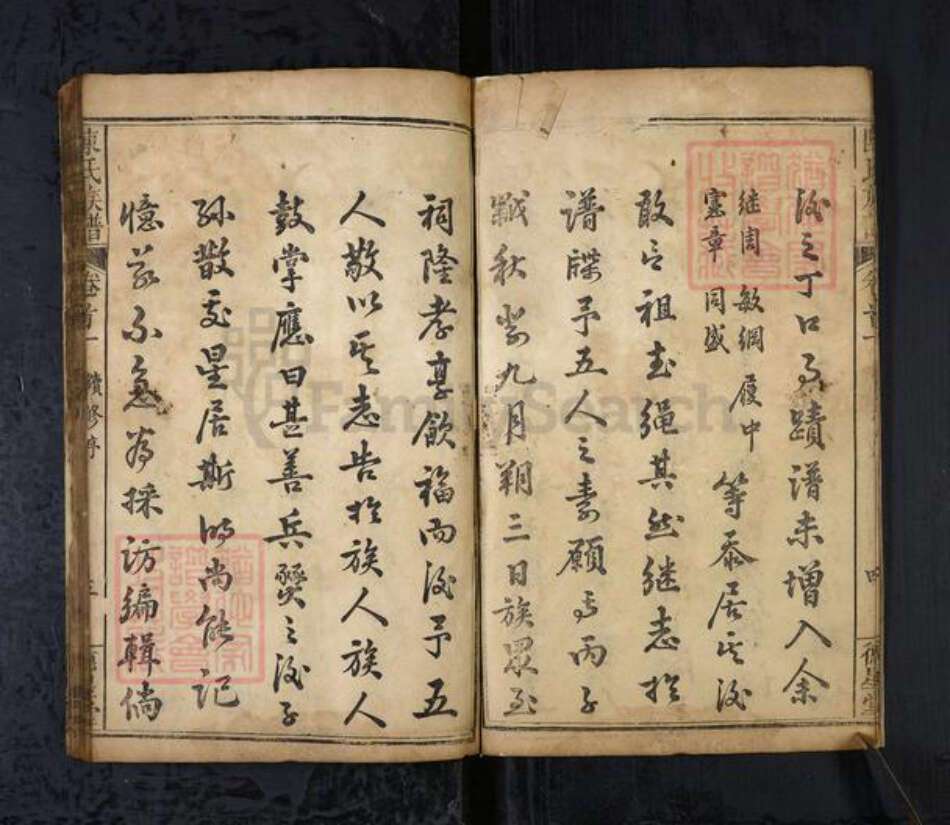 後之丁口事蹟譜未增入余
继周 敏綱 履中
憲章 同盛
等忝居其後
敢云祖武繩其然继志於
譜牒予五人之素願也丙子
秋 九月朔三日族眾至
祠隆孝享飲福而後予五
人敬以其志告於族人族人
鼓掌應曰甚善兵燹之後子
孫散處星居斯時尚能記
憶若不急為採訪編輯倘
陳氏族譜 卷首一 續修序 三
FamilySearch